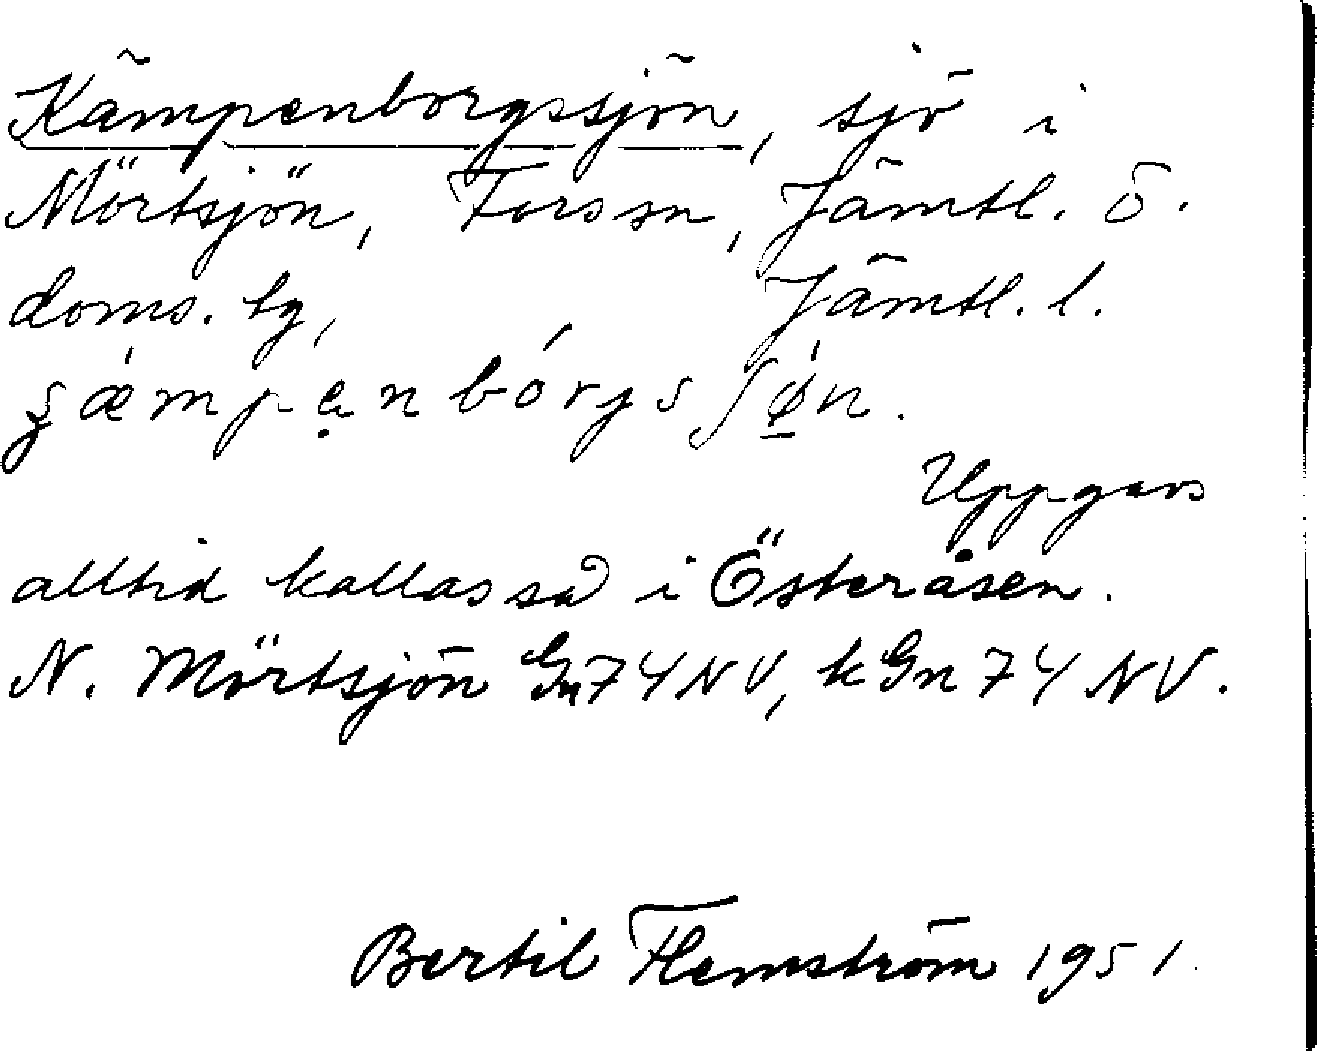 Kämpenborgssjön, sjö i
Mörtsjön, Fors sn, Jämtl. ö.
doms. tg, Jämtl. l.
Uppgavs
alltid kallas så i Österåsen.
N. Mörtsjön Gn 74 NV, kGn 74 NV.
Bertil Flemström 1951.